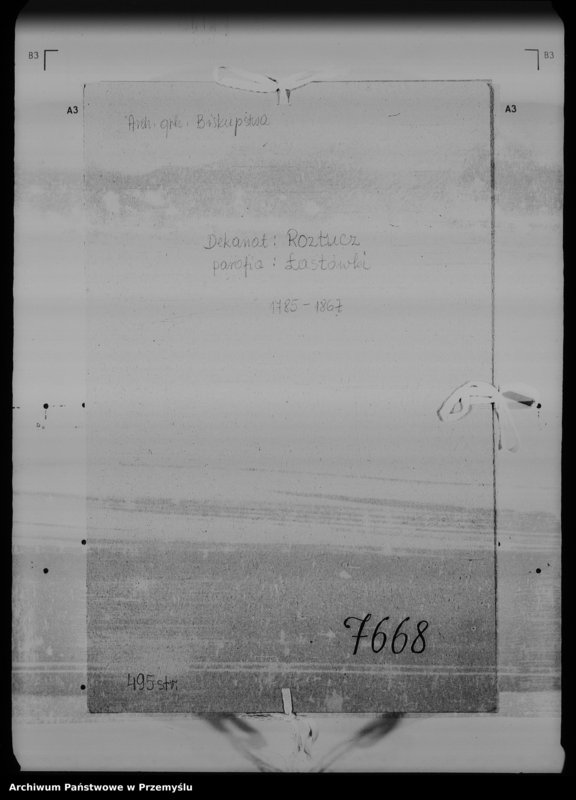 B3
B3
A3
A3
Arch. grk. Biskupstwa
Dekanat: Roztucz
parafia: Łastówki
1785-1867
7668
495 str.
Archiwum Państwowe w Przemyślu